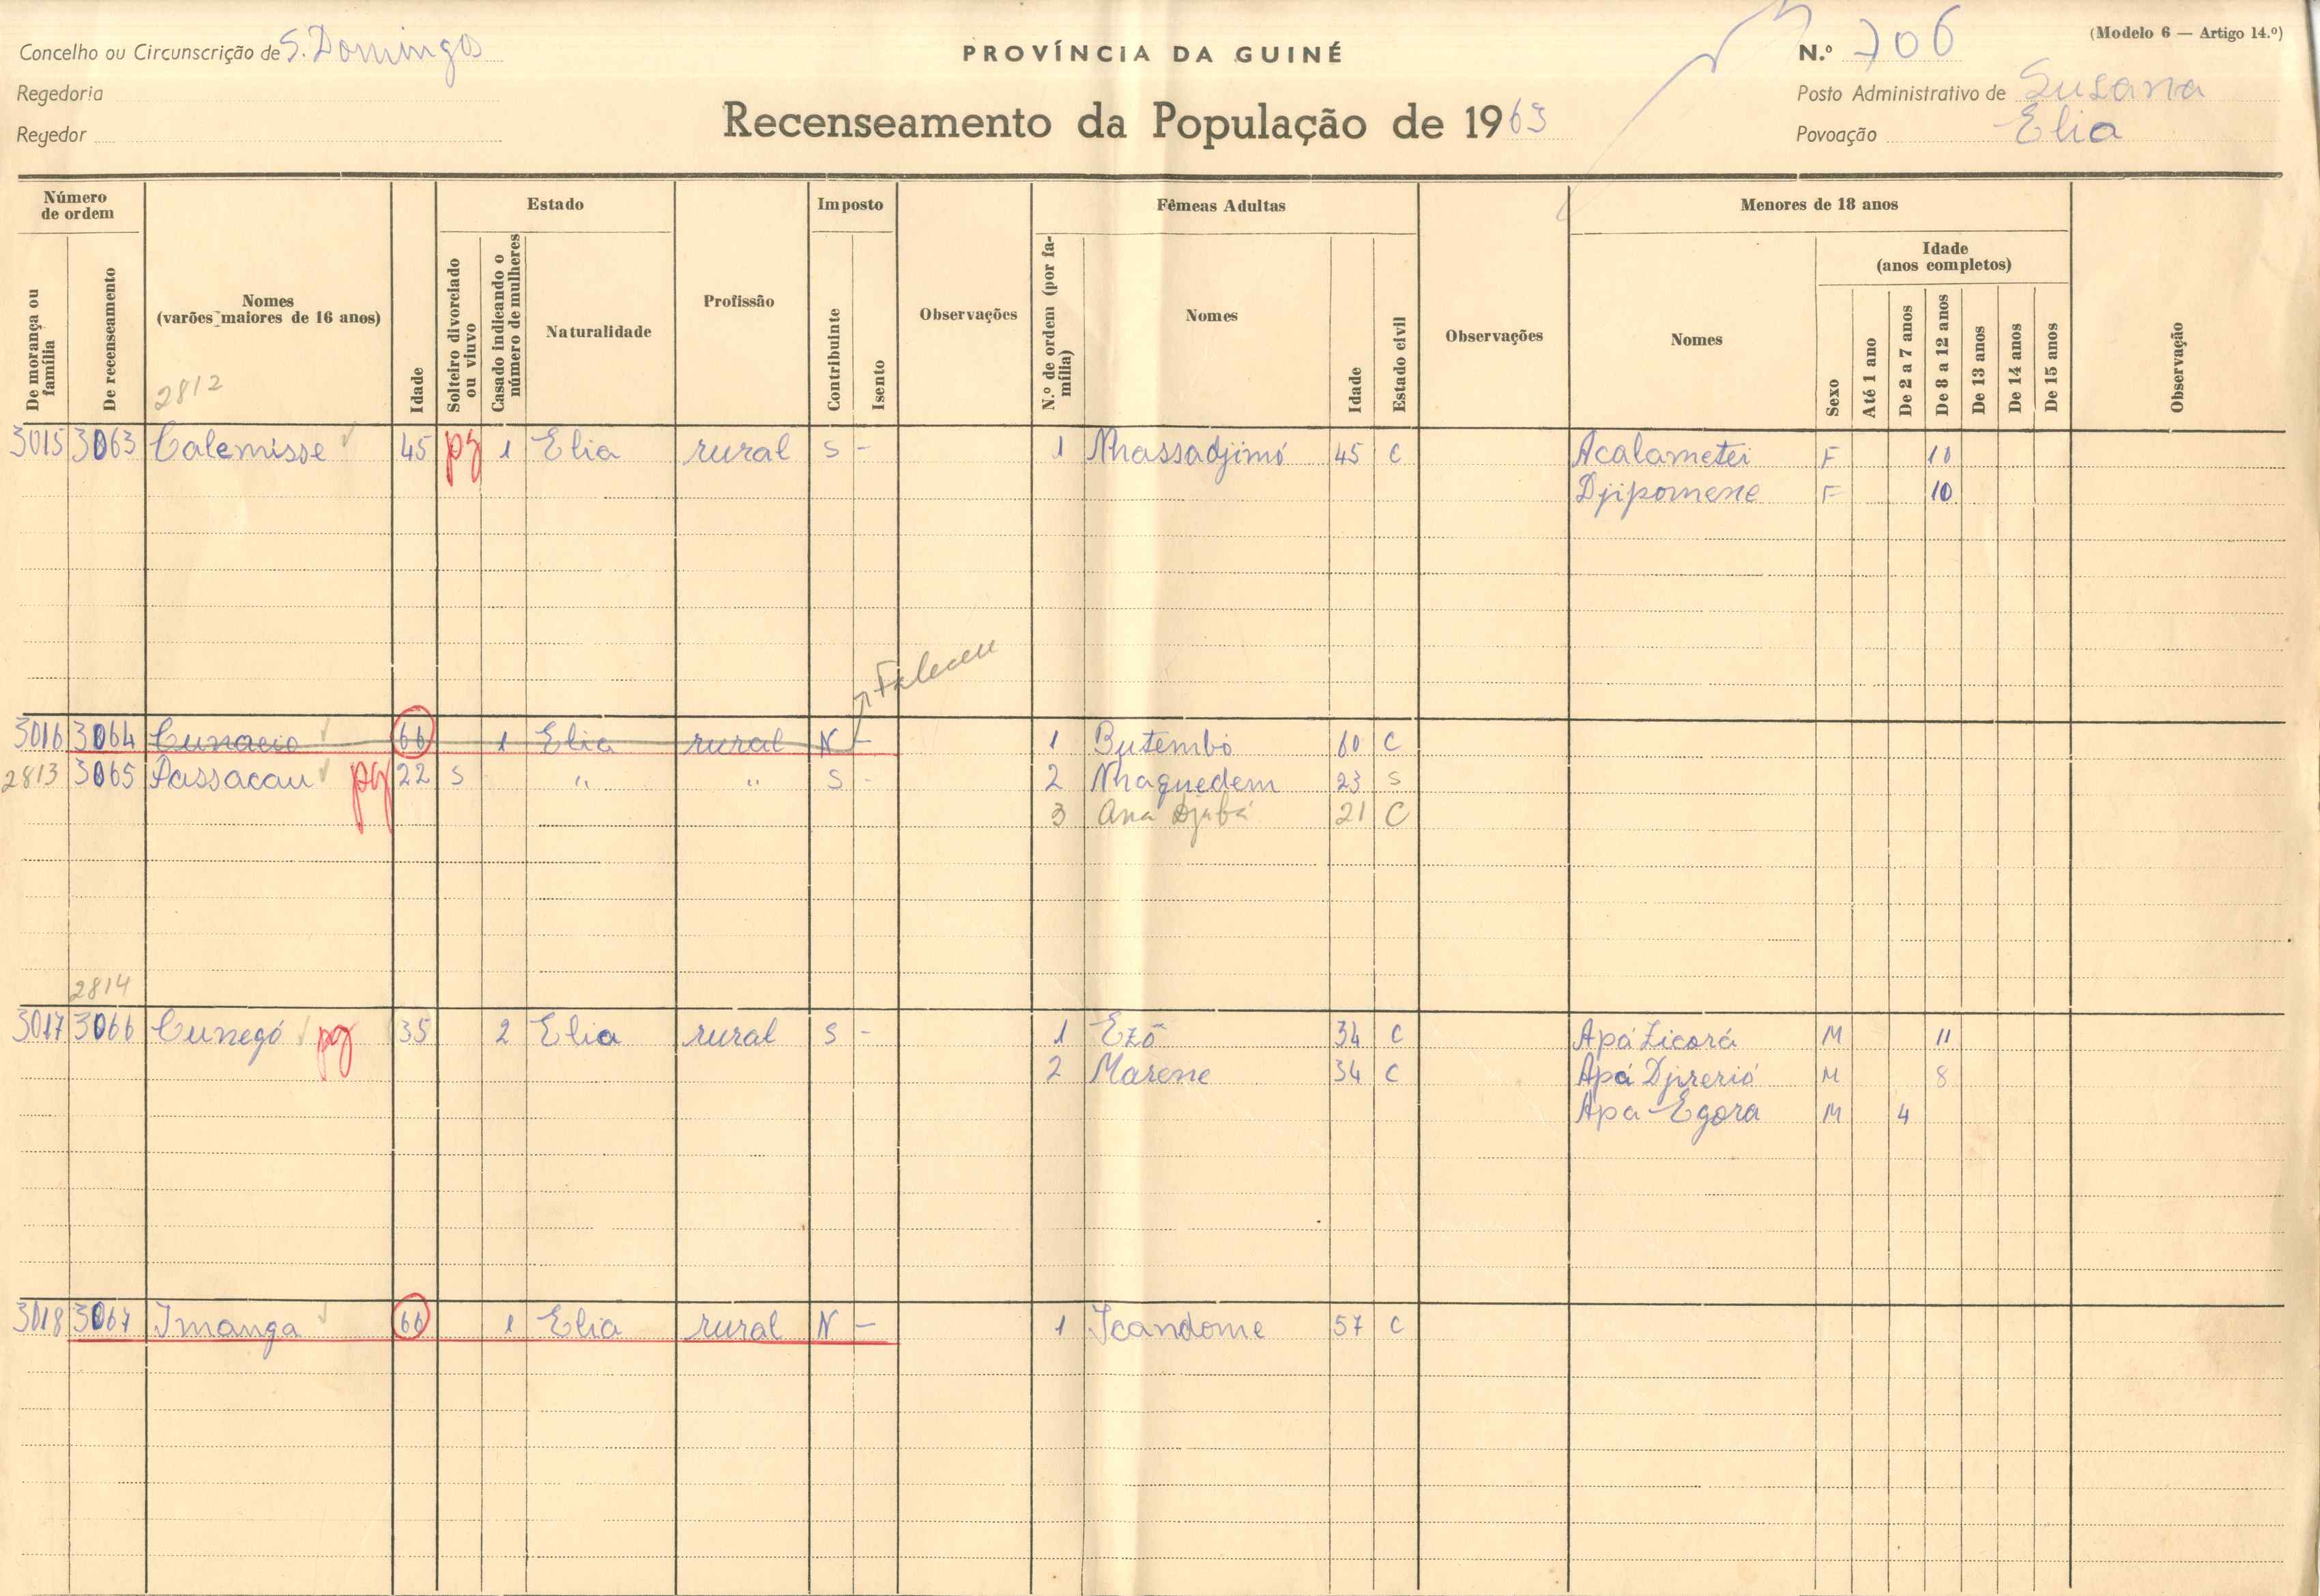 Concelho ou Circunscrição de S. Domingos
PROVÍNCIA DA GUINÉ
N.º 706
(Modelo 6 — Artigo 14.º)
Regedoria
Posto Administrativo de Susana
Regedor
Recenseamento da População de 1963
Povoação Elia
Número de ordem
Estado
Imposto
Fêmeas Adultas
Menores de 18 anos
De morança ou família
De recenseamento
Nomes
(varões maiores de 16 anos)
2812
Idade
Solteiro divorciado ou viuvo
Casado indicando o número de mulheres
Naturalidade
Profissão
Contribuinte
Isento
Observações
N.º de ordem (por família)
Nomes
Idade
Estado civil
Observações
Nomes
Sexo
Idade
(anos completos)
Até 1 ano
De 2 a 7 anos
De 8 a 12 anos
De 13 anos
De 14 anos
De 15 anos
Observação
3015 3063 Calemisse 45 pg 1 Elia rural S - 1 Nhassadjimó 45 C Acalametei F 10
Djipomene F 10
Faleceu
3016 3064 Cunacio 66 1 Elia rural N - 1 Butembó 60 C
2813 3065 Passacau pg 22 S " " S - 2 Nhaquedem 23 S
3 Ana Djubá 21 C
2814
3017 3066 Cunegó pg 35 2 Elia rural S - 1 Ezõ 34 C Apá Licorá M 11
2 Marene 34 C Apá Djirerió M 8
Apa Egora M 4
3018 3067 Imanga 66 1 Elia rural N - 1 Icandome 57 C